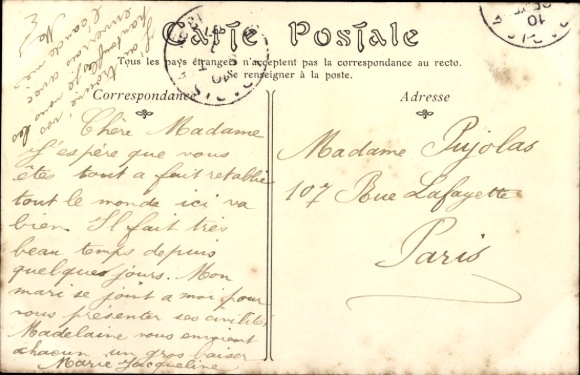 Carte Postale
Tous les pays étrangers n'acceptent pas la correspondance au recto.
Se renseigner à la poste.
Correspondance
Adresse
Chère Madame
J'espére que vous
êtes tout a fait retablie
tout le monde ici va
bien. Il fait très
beau temps depuis
quelques jours. Mon
mari se joint a moi pour
vous présenter ses civilités
Madelaine vous envoient
chacun un gros baiser
Marie Jacqueline
Madame Pujolas
107 Rue Lafayette
Paris
J'ai trouvé vos
pantoufles je vous les
enverrais avec